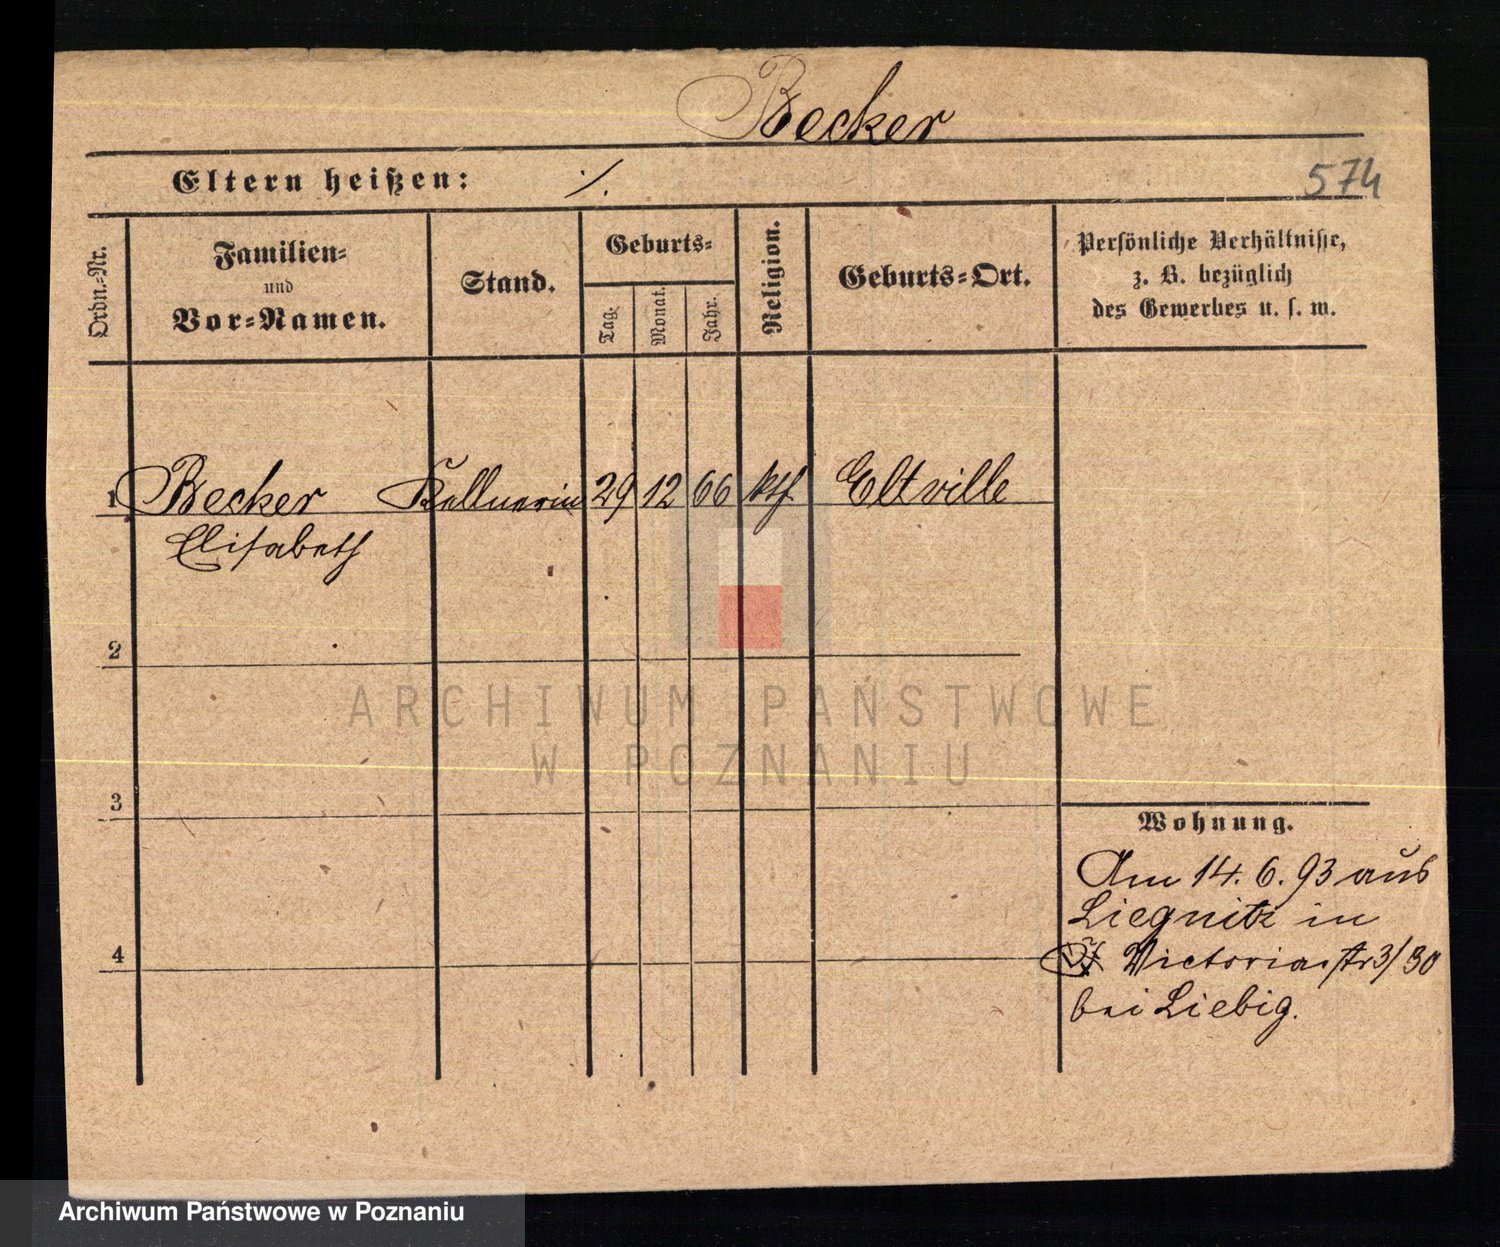 Becker
Eltern heißen: ./.
574
Ordn.-Nr.
Familien-
und
Vor-Namen.
Stand.
Geburts-
Tag.
Monat.
Jahr.
Religion.
Geburts-Ort.
Persönliche Verhältnisse,
z. B. bezüglich
des Gewerbes u. s. w.
1 Becker Kellnerin 29 12 66 kth. Eltville
Elisabeth
2
3
4
Wohnung.
Am 14. 6. 93 aus
Liegnitz in
Victoriastr 3/30
bei Liebig.
ARCHIWUM PAŃSTWOWE
W POZNANIU
Archiwum Państwowe w Poznaniu